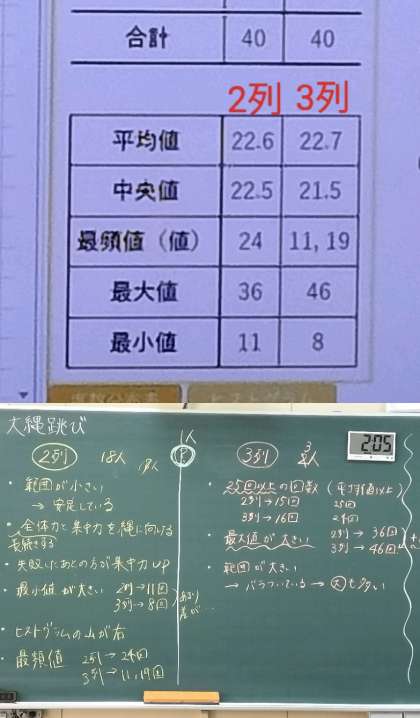 合計 40 40
2列 3列
平均値 22.6 22.7
中央値 22.5 21.5
最頻値（値） 24 11, 19
最大値 36 46
最小値 11 8
大縄跳び
2列 18人
・範囲が小さい
→ 安定している
・全体力と集中力を縄に向ける
長続きする
・失敗したあとの方が集中力UP
・最小値が大きい 2列→11回
3列→8回
あまり
差が…
・ヒストグラムの山が右
・最頻値 2列→24回
3列→11,19回
1人
3列
2:05
・25回以上の回数（平均値以上）
2列→15回 25回
3列→16回 24回
・最大値が大きい 2列→36回
3列→46回
・範囲が大きい
→ バラついている →